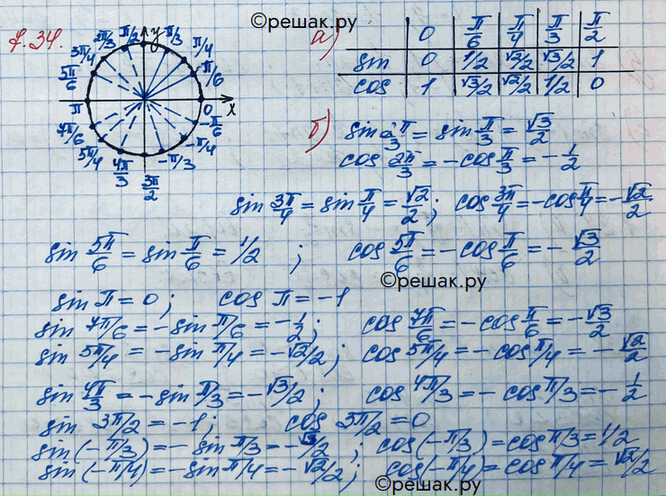 ©решак.ру
7.34.
y
π/2
2π/3 π/3
3π/4 π/4
5π/6 π/6
π 0 x
7π/6 -π/6
5π/4 -π/4
4π/3 3π/2 -π/3
а)
0 π/6 π/4 π/3 π/2
sin 0 1/2 √2/2 √3/2 1
cos 1 √3/2 √2/2 1/2 0
б) sin 2π/3 = sin π/3 = √3/2
cos 2π/3 = -cos π/3 = -1/2
sin 3π/4 = sin π/4 = √2/2; cos 3π/4 = -cos π/4 = -√2/2
sin 5π/6 = sin π/6 = 1/2 ; cos 5π/6 = -cos π/6 = -√3/2
©решак.ру
sin π = 0; cos π = -1
sin 7π/6 = -sin π/6 = -1/2; cos 7π/6 = -cos π/6 = -√3/2
sin 5π/4 = -sin π/4 = -√2/2; cos 5π/4 = -cos π/4 = -√2/2
sin 4π/3 = -sin π/3 = -√3/2; cos 4π/3 = -cos π/3 = -1/2
sin 3π/2 = -1; cos 3π/2 = 0
sin(-π/3) = -sin π/3 = -√3/2; cos(-π/3) = cos π/3 = 1/2
sin(-π/4) = -sin π/4 = -√2/2; cos(-π/4) = cos π/4 = √2/2
©решак.ру